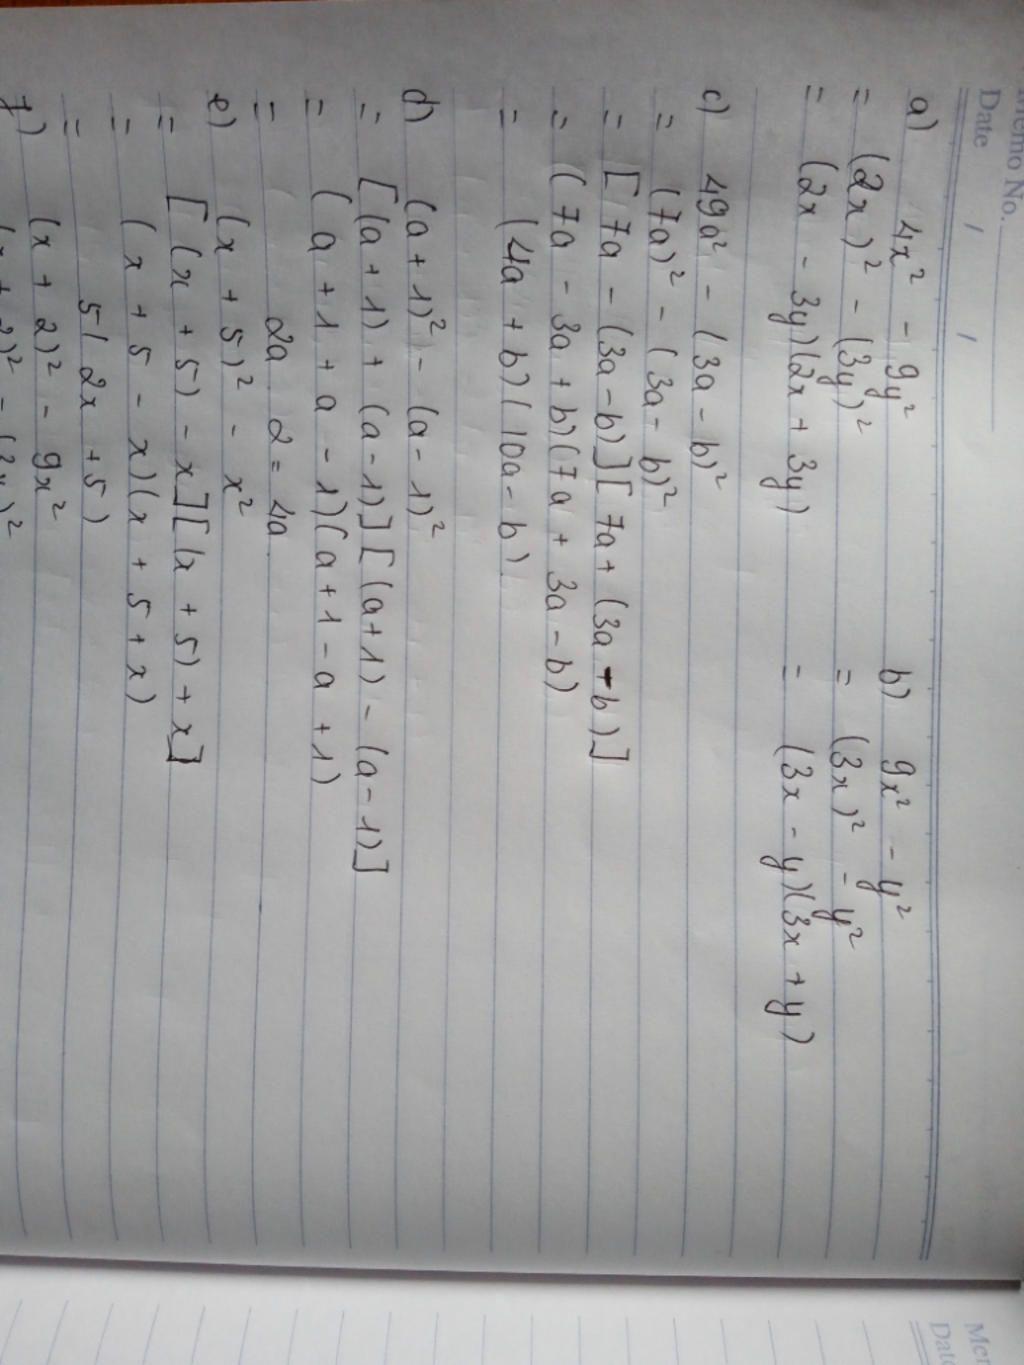 Memo No.
Date / /
a) 4x² - 9y² b) 9x² - y²
= (2x)² - (3y)² = (3x)² - y²
= (2x - 3y)(2x + 3y) = (3x - y)(3x + y)
c) 49a² - (3a - b)²
= (7a)² - (3a - b)²
= [7a - (3a - b)][7a + (3a - b)]
= (7a - 3a + b)(7a + 3a - b)
= (4a + b)(10a - b)
d) (a + 1)² - (a - 1)²
= [(a + 1) + (a - 1)][(a + 1) - (a - 1)]
= (a + 1 + a - 1)(a + 1 - a + 1)
= 2a 2 = 4a
e) (x + 5)² - x²
= [(x + 5) - x][(x + 5) + x]
= (x + 5 - x)(x + 5 + x)
= 5(2x + 5)
f) (x + 2)² - 9x²